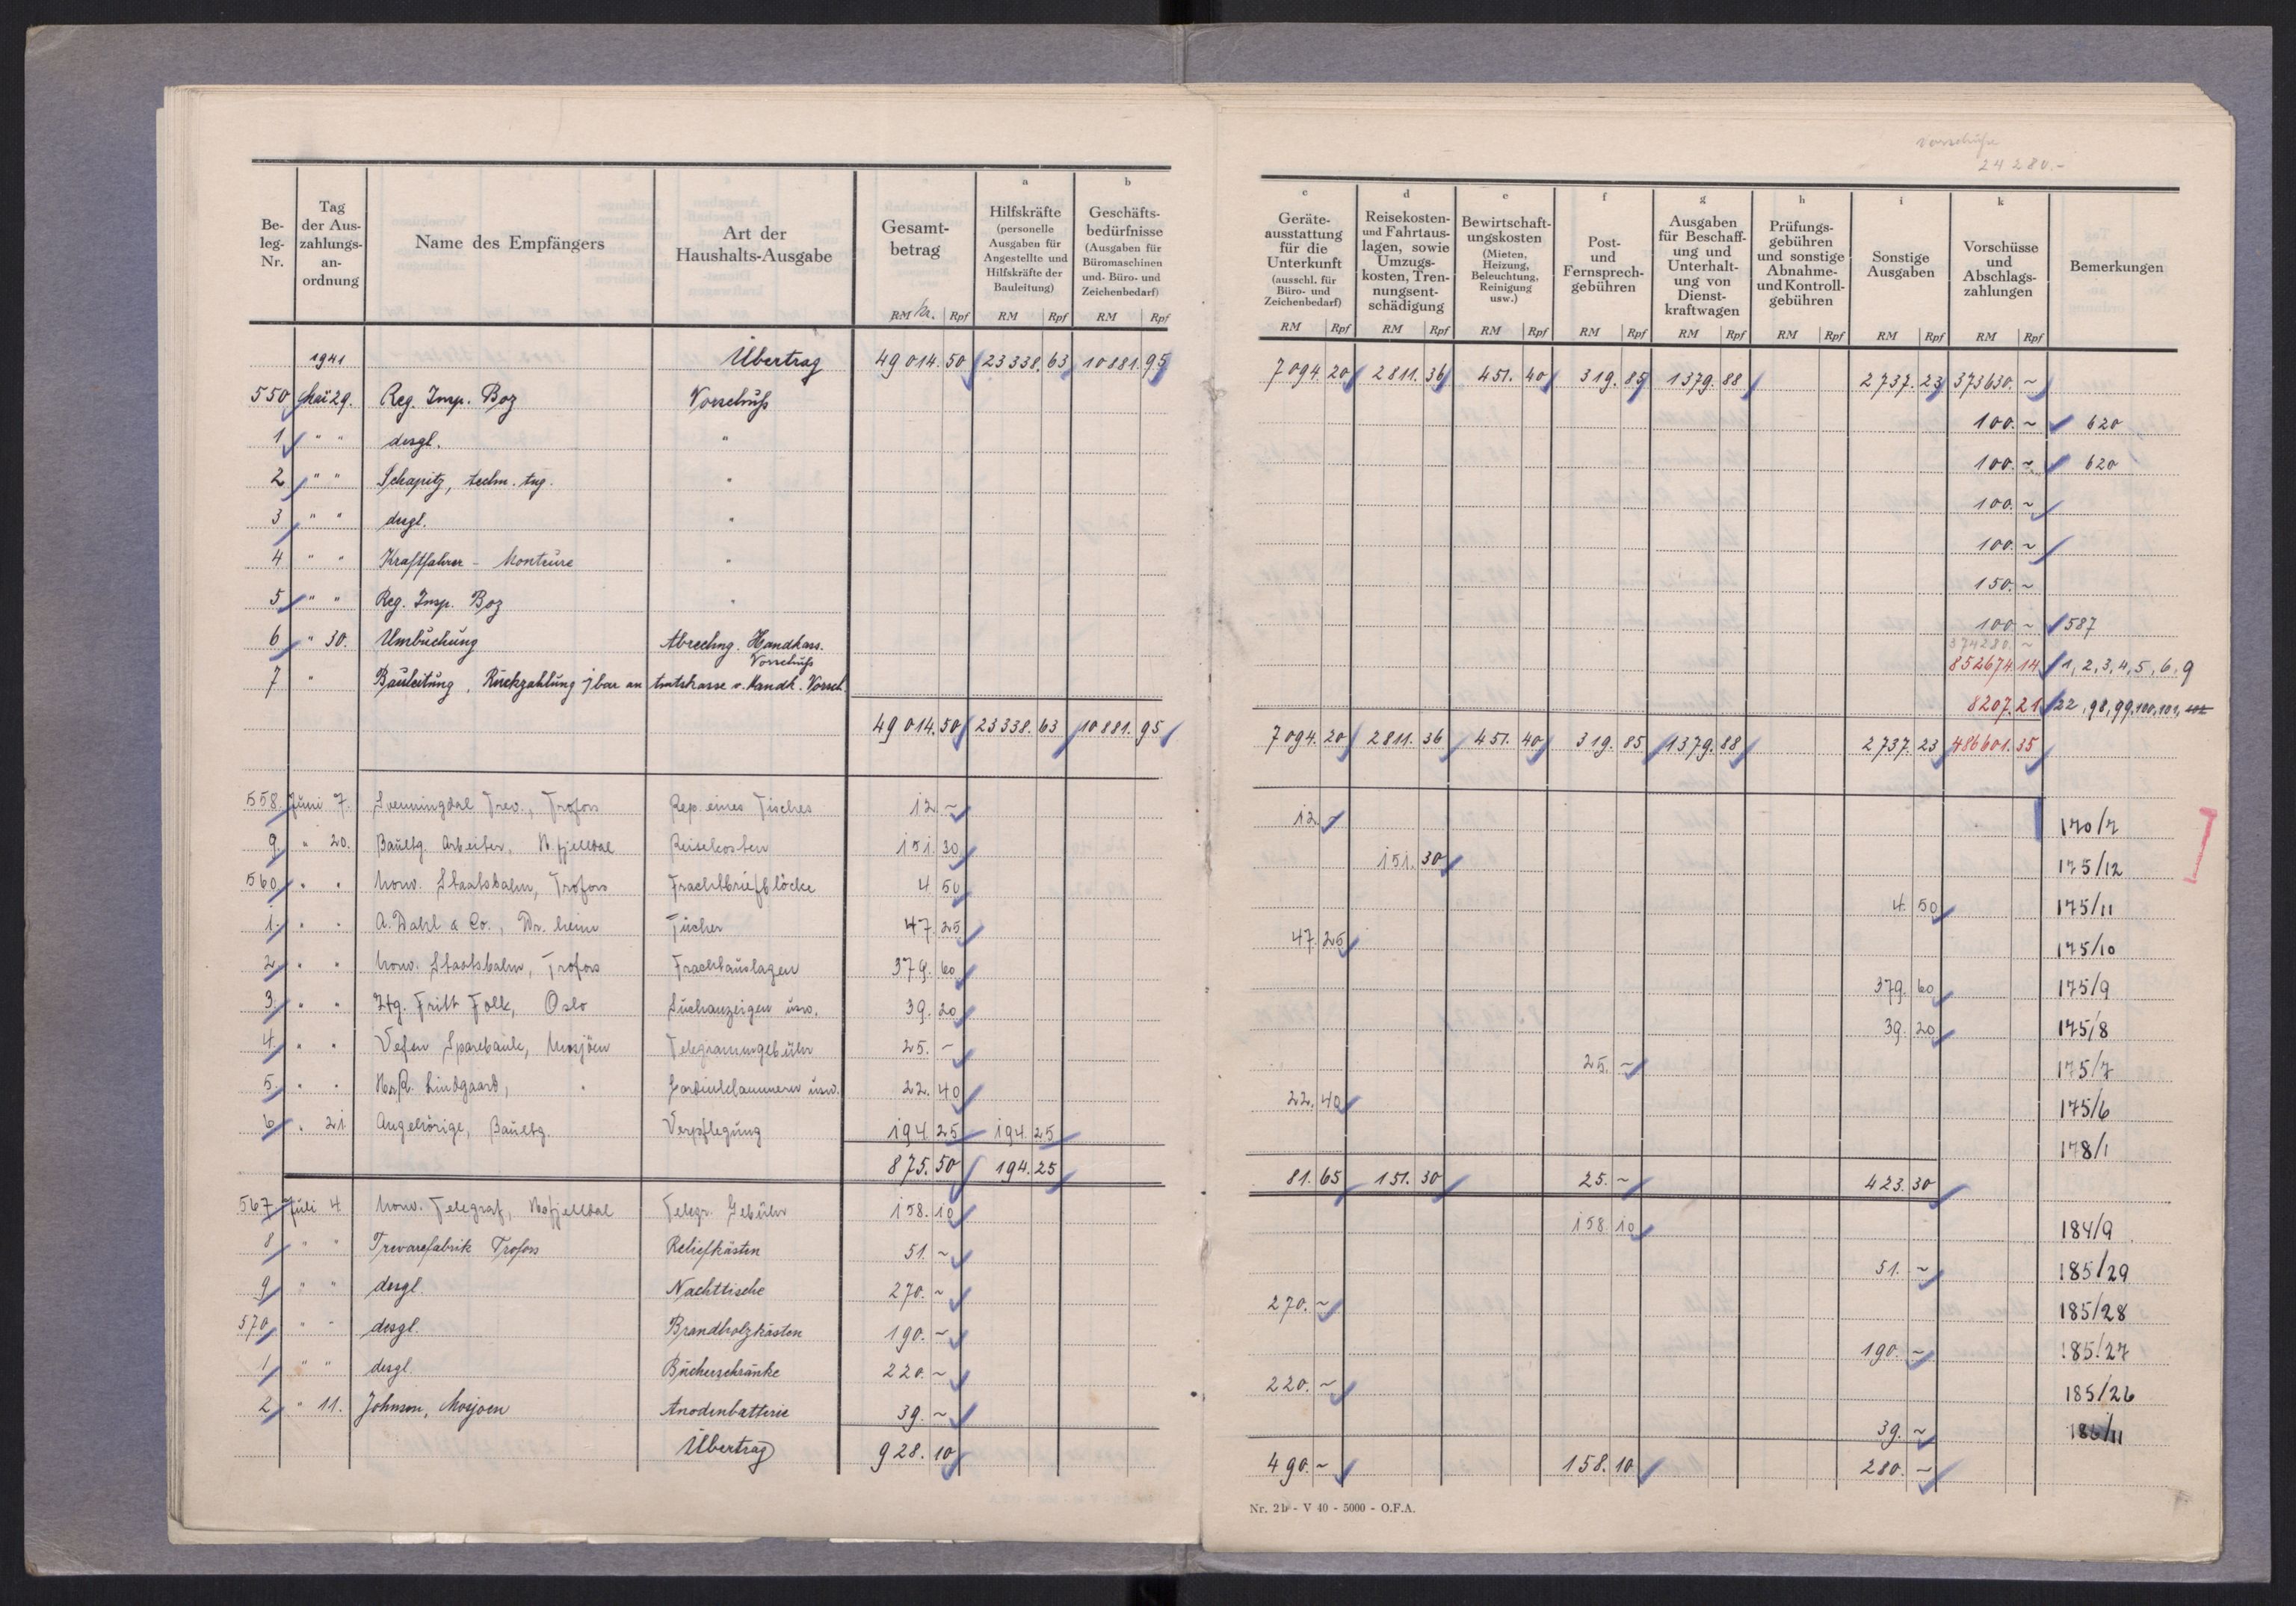 Vorschüsse
24 280.-
Be-leg-Nr. | Tag der Aus-zahlungs-an-ordnung | Name des Empfängers | Art der Haushalts-Ausgabe | Gesamt-betrag RM Kr. Rpf | a Hilfskräfte (personelle Ausgaben für Angestellte und Hilfskräfte der Bauleitung) RM Rpf | b Geschäfts-bedürfnisse (Ausgaben für Büromaschinen und. Büro- und Zeichenbedarf) RM Rpf | c Geräte-ausstattung für die Unterkunft (ausschl. für Büro- und Zeichenbedarf) RM Rpf | d Reisekosten- und Fahrtaus-lagen, sowie Umzugs-kosten, Tren-nungsent-schädigung RM Rpf | e Bewirtschaft-ungskosten (Mieten, Heizung, Beleuchtung, Reinigung usw.) RM Rpf | f Post- und Fernsprech-gebühren RM Rpf | g Ausgaben für Beschaff-ung und Unterhalt-ung von Dienst-kraftwagen RM Rpf | h Prüfungs-gebühren und sonstige Abnahme- und Kontroll-gebühren RM Rpf | i Sonstige Ausgaben RM Rpf | k Vorschüsse und Abschlags-zahlungen RM Rpf | Bemerkungen
1941 Übertrag 49 014. 50 23 338. 63 10 881. 95 7 094. 20 2 811. 36 451. 40 319. 85 1 379. 88 2 737. 23 373 630. ~
550 Mai 29. Reg. Insp. Boz Vorschuß 100. ~ 620
1 " " desgl. " 100. ~ 620
2 " " Schapitz, techn. Ing. " 100. ~
3 " " desgl. " 100. ~
4 " " Kraftfahrer - Monteure " 150. ~
5 " " Reg. Insp. Boz " 100 ~ 587
374 280. ~
6 " 30. Umbuchung Abrechng. Handkass. Vorschuß 852 674. 14 1, 2, 3, 4, 5, 6. 9
7 " Bauleitung, Rückzahlung j bar an Amtskasse v. Handk. Vorsch. 8 207. 21 22, 98, 99, 100, 101, 102
49 014. 50 23 338. 63 10 881. 95 7 094. 20 2 811. 36 451. 40 319. 85 1 379. 88 2 737. 23 486 601. 35
558. Juni 7. Svenningdal Trev., Trofors Rep. eines Tisches 12 ~ 12. - 170/7
9. " 20. Baultg. Arbeiter, N. fjelldal Reisekosten 151. 30 151. 30 175/12
560 " " Norw. Staatsbahn, Trofors Frachtbriefblöcke 4. 50 4. 50 175/11
1. " " A. Dahl & Co., Dr. heim Tücher 47. 25 47. 25 175/10
2 " " Norw. Staatsbahn, Trofors Frachtauslagen 379. 60 379. 60 175/9
3. " " Ztg. Fritt Folk, Oslo Suchanzeigen usw. 39. 20 39. 20 175/8
4. " " Vefsn Sparebank, Mosjöen Telegrammgebühr 25. - 25. ~ 175/7
5. " " Lindgaard, " Gardinklammern usw. 22. 40 22. 40 175/6
6 " 21 Angehörige, Baultg. Verpflegung 194. 25 194. 25 178/1
875. 50 194. 25 81. 65 151. 30 25. ~ 423. 30
567 Juli 4 Norw. Telegraf, Nofjelldal Telegr. Gebühr 158. 10 158. 10 184/9
8 " " Trevarefabrik Trofors Reliefkästen 51. ~ 51. ~ 185/29
9 " " desgl. Nachttische 270. ~ 270. ~ 185/28
570 " " desgl. Brandholzkästen 190. ~ 190. ~ 185/27
1 " " desgl. Bücherschränke 220. ~ 220. ~ 185/26
2 " 11. Johnsen, Mosjoen Anodenbatterie 39. ~ 39. ~
Übertrag 928. 10 490. ~ 158. 10 280. ~
Nr. 2b - V 40 - 5000 - O.F.A.